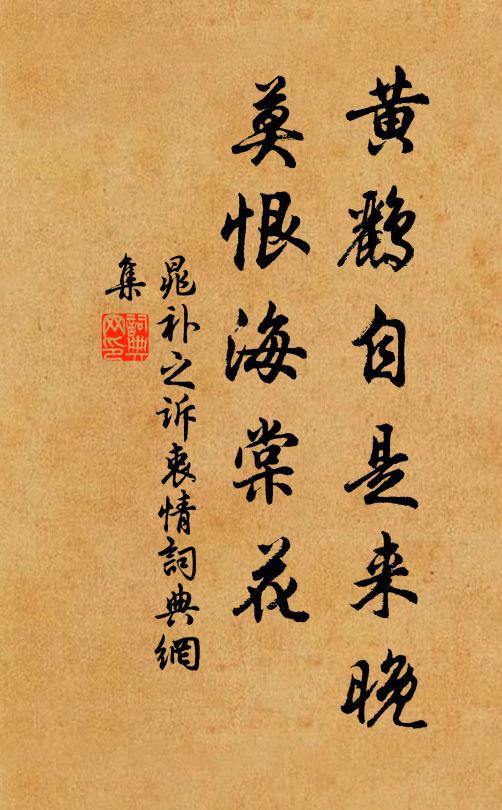 黄鸝自是来晚
莫恨海棠花
晁补之诉衷情詞典網
集
詞典网印